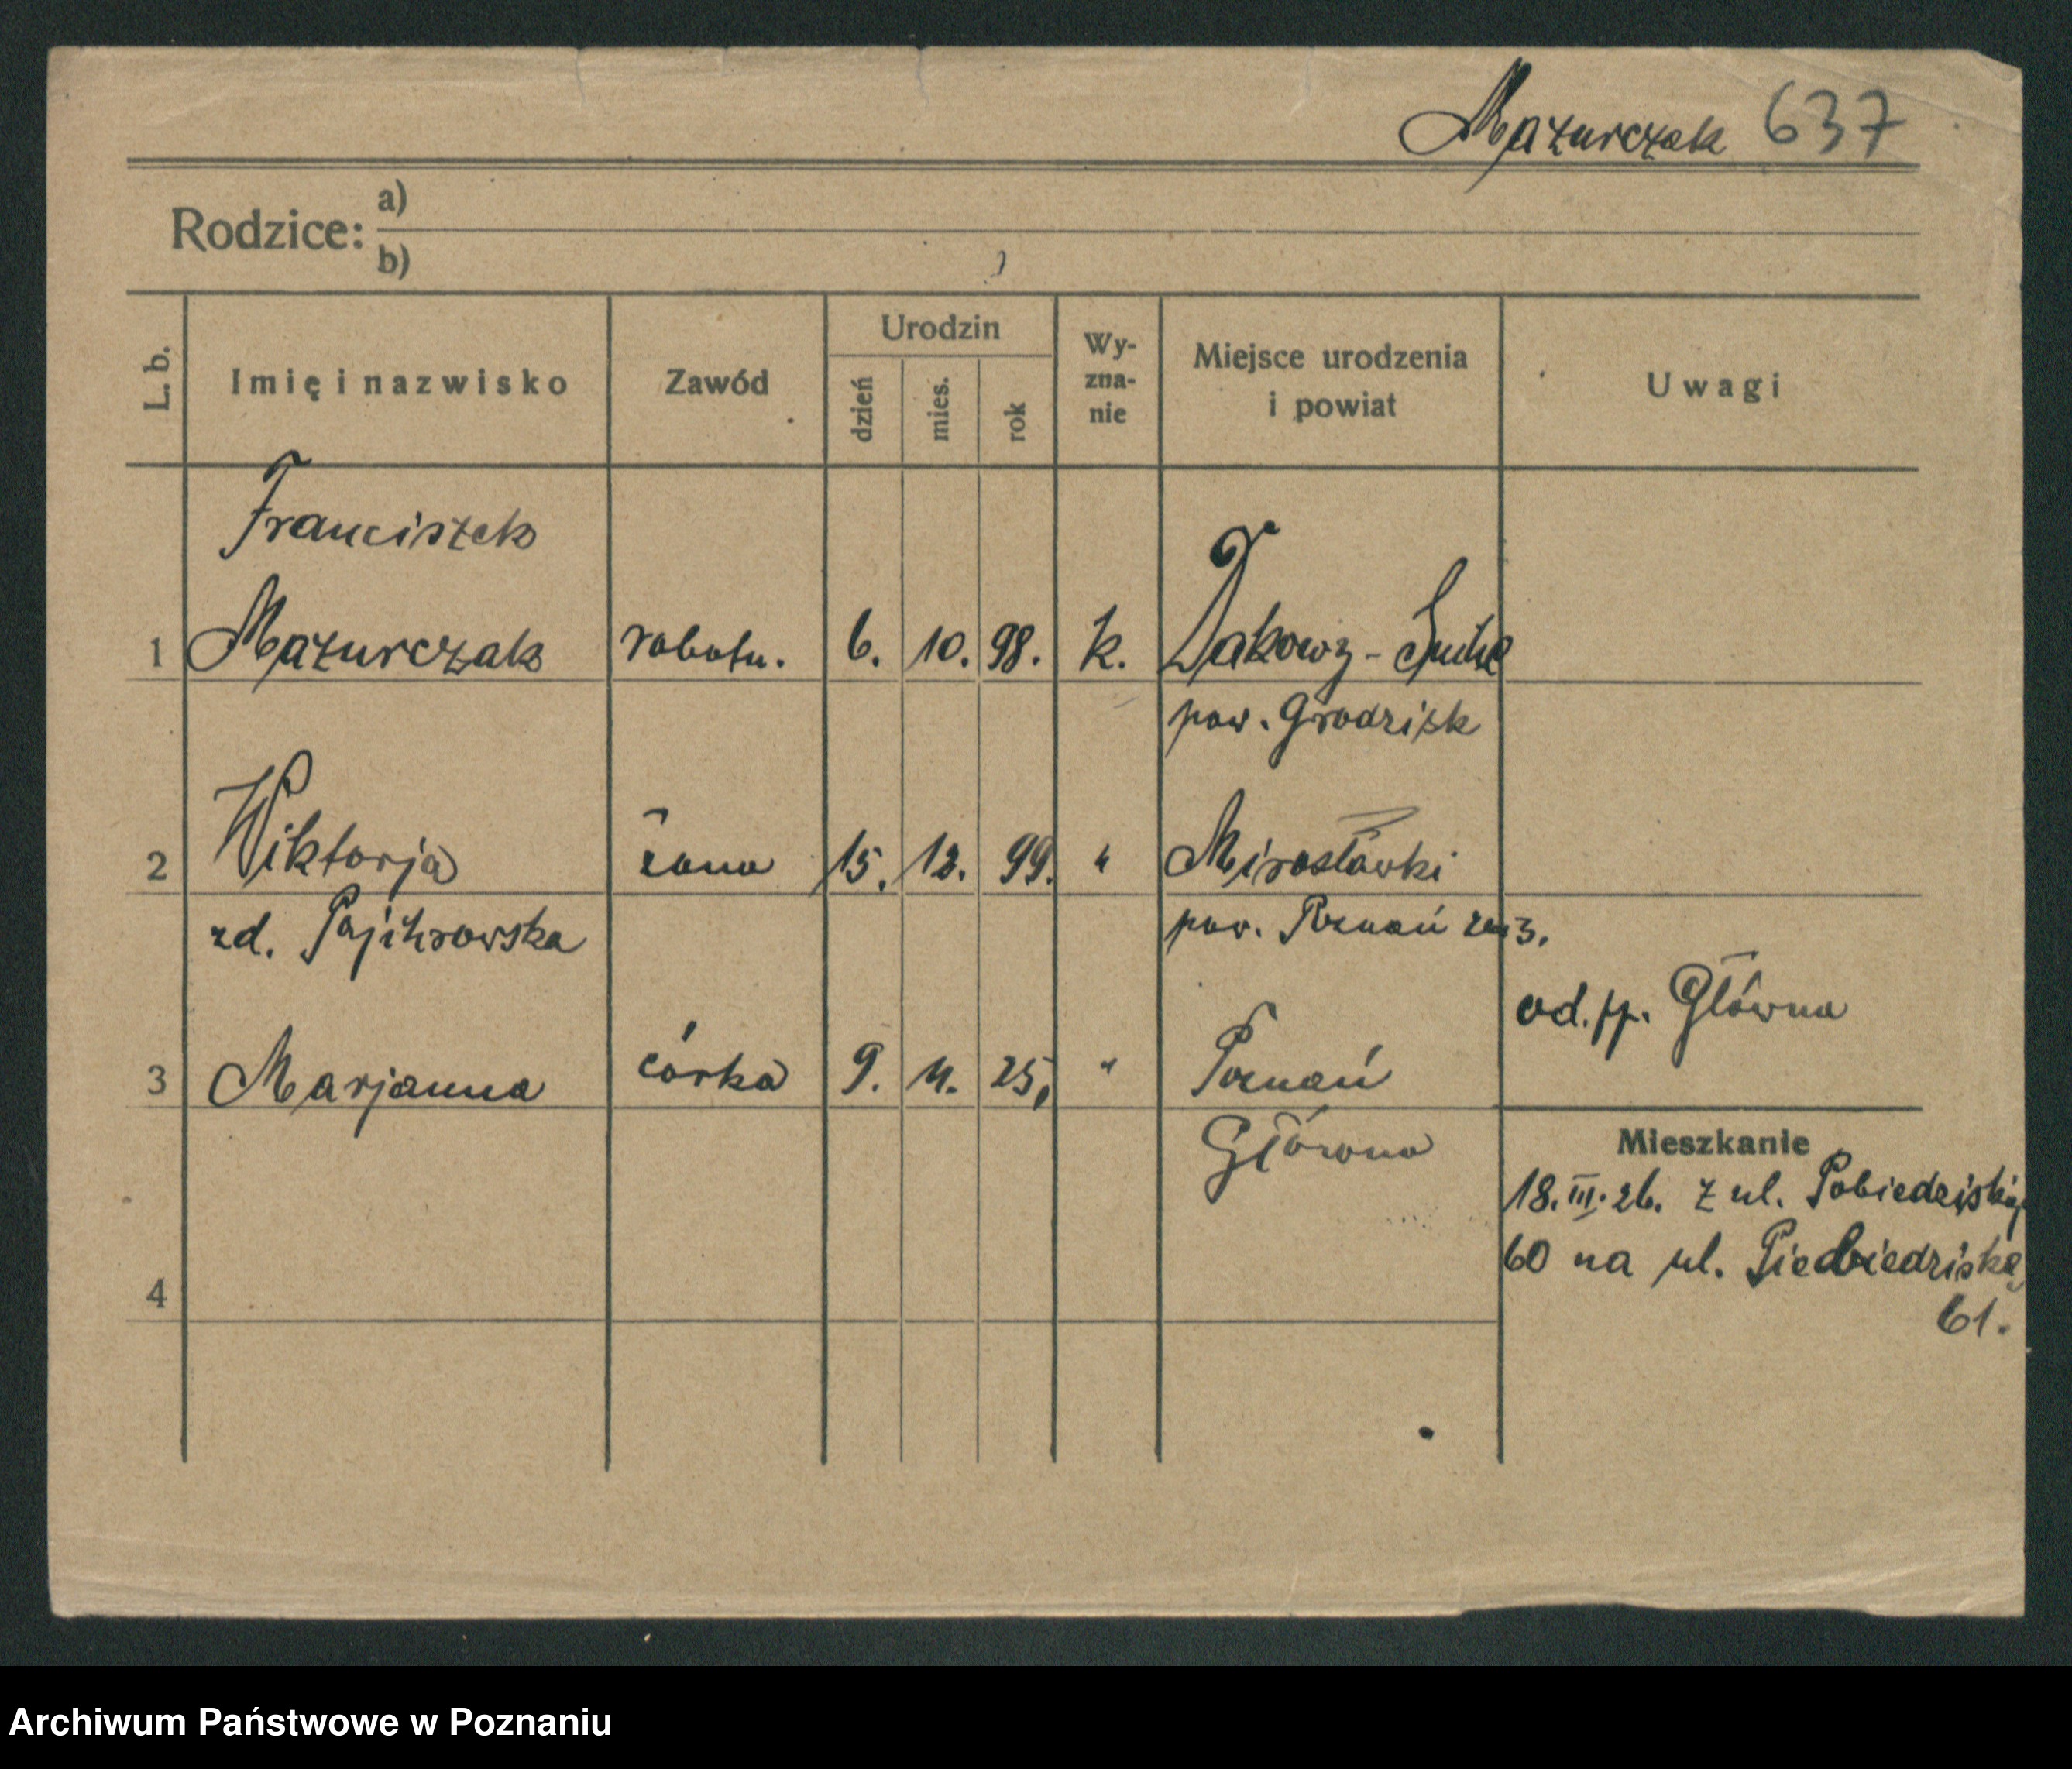 Mazurczak 637
Rodzice: a)
b)
L. b.
Imię i nazwisko
Zawód
Urodzin
dzień
mies.
rok
Wy-
zna-
nie
Miejsce urodzenia
i powiat
Uwagi
Franciszek
1 Mazurczak robotn. 6. 10. 98. k. Dakowy-Suche
pow. Grodzisk
2 Wiktorja żona 15. 12. 99. " Mirosławki
zd. pow. Poznań zach.
od. p. Główna
3 Marjanna córka 9. 11. 25. " Poznań
Główna
Mieszkanie
18.III.26. z ul. Pobiedziskiej
60 na ul.
61.
4
Archiwum Państwowe w Poznaniu